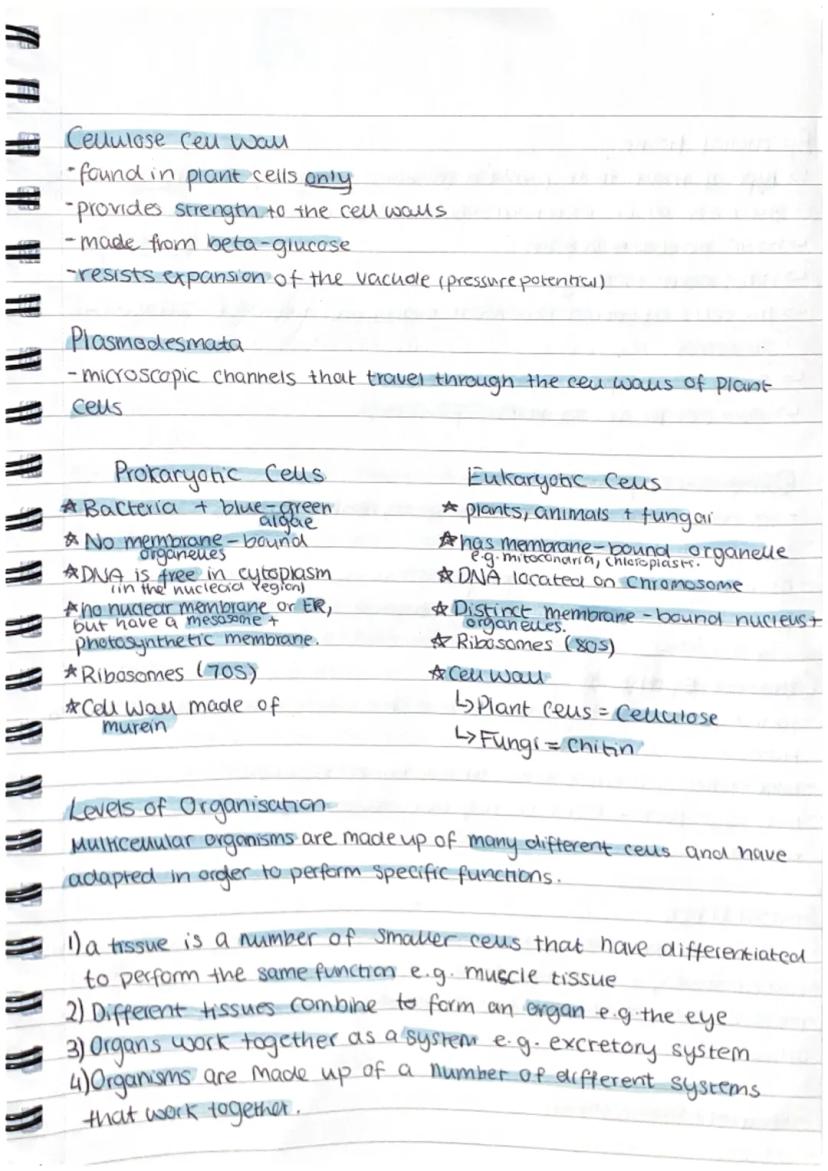 Cellulose Cell Wall
- found in plant cells only
- provides strength to the cell walls
- made from beta-glucose
- resists expansion of the vacuole (pressure potential)
Plasmodesmata
- microscopic channels that travel through the cell walls of plant
cells
Prokaryotic Cells
☆ Bacteria + blue-green
algae
☆ No membrane-bound
organelles
☆ DNA is free in cytoplasm
(in the nucleoid region)
☆ no nuclear membrane or ER,
but have a mesosome +
photosynthetic membrane.
☆ Ribosomes (70S)
☆ Cell Wall made of
murein
Eukaryotic Cells
☆ plants, animals + fungai
☆ has membrane-bound organelle
e.g. mitoconaria, chloroplasts.
☆ DNA located on chromosome
☆ Distinct membrane-bound nucleus +
organelles.
☆ Ribosomes (80S)
☆ Cell Wall
↳ Plant cells = Cellulose
↳ Fungi = Chitin
Levels of Organisation
Multicellular organisms are made up of many different cells and have
adapted in order to perform specific functions.
1) a tissue is a number of smaller cells that have differentiated
to perform the same function e.g. muscle tissue
2) Different tissues combine to form an organ e.g. the eye
3) Organs work together as a system e.g. excretory system
4) Organisms are made up of a number of different systems
that work together.